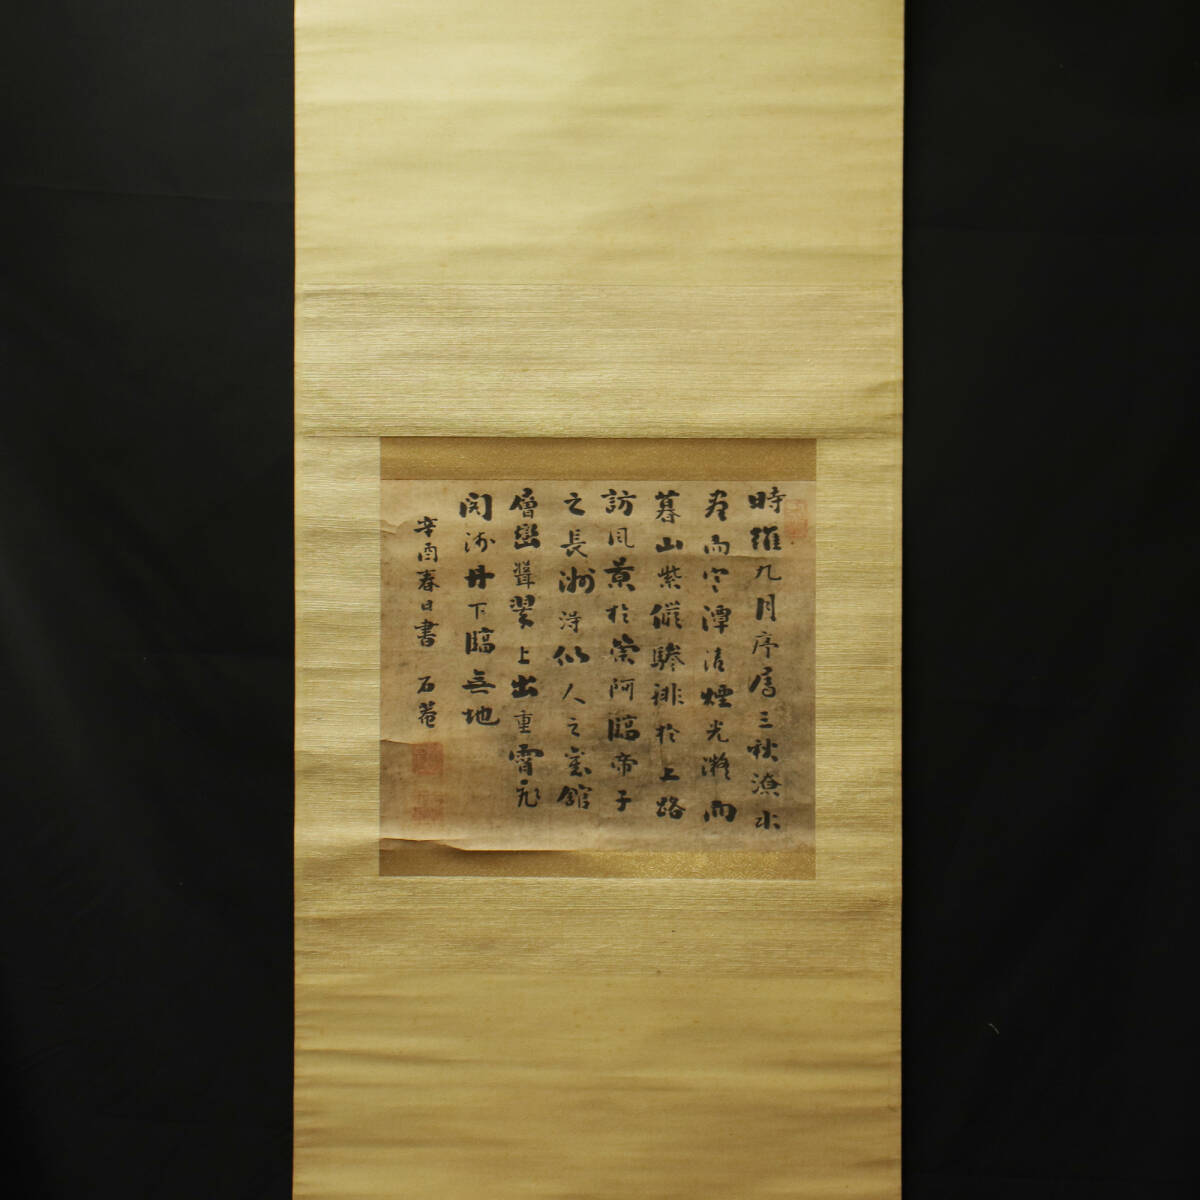 時維九月序属三秋潦水
盡而寒潭清煙光凝而
暮山紫儼驂騑於上路
訪風景於崇阿臨帝子
之長洲得仙人之舊館
層巒聳翠上出重霄飛
閣流丹下臨無地
辛酉春日書 石菴